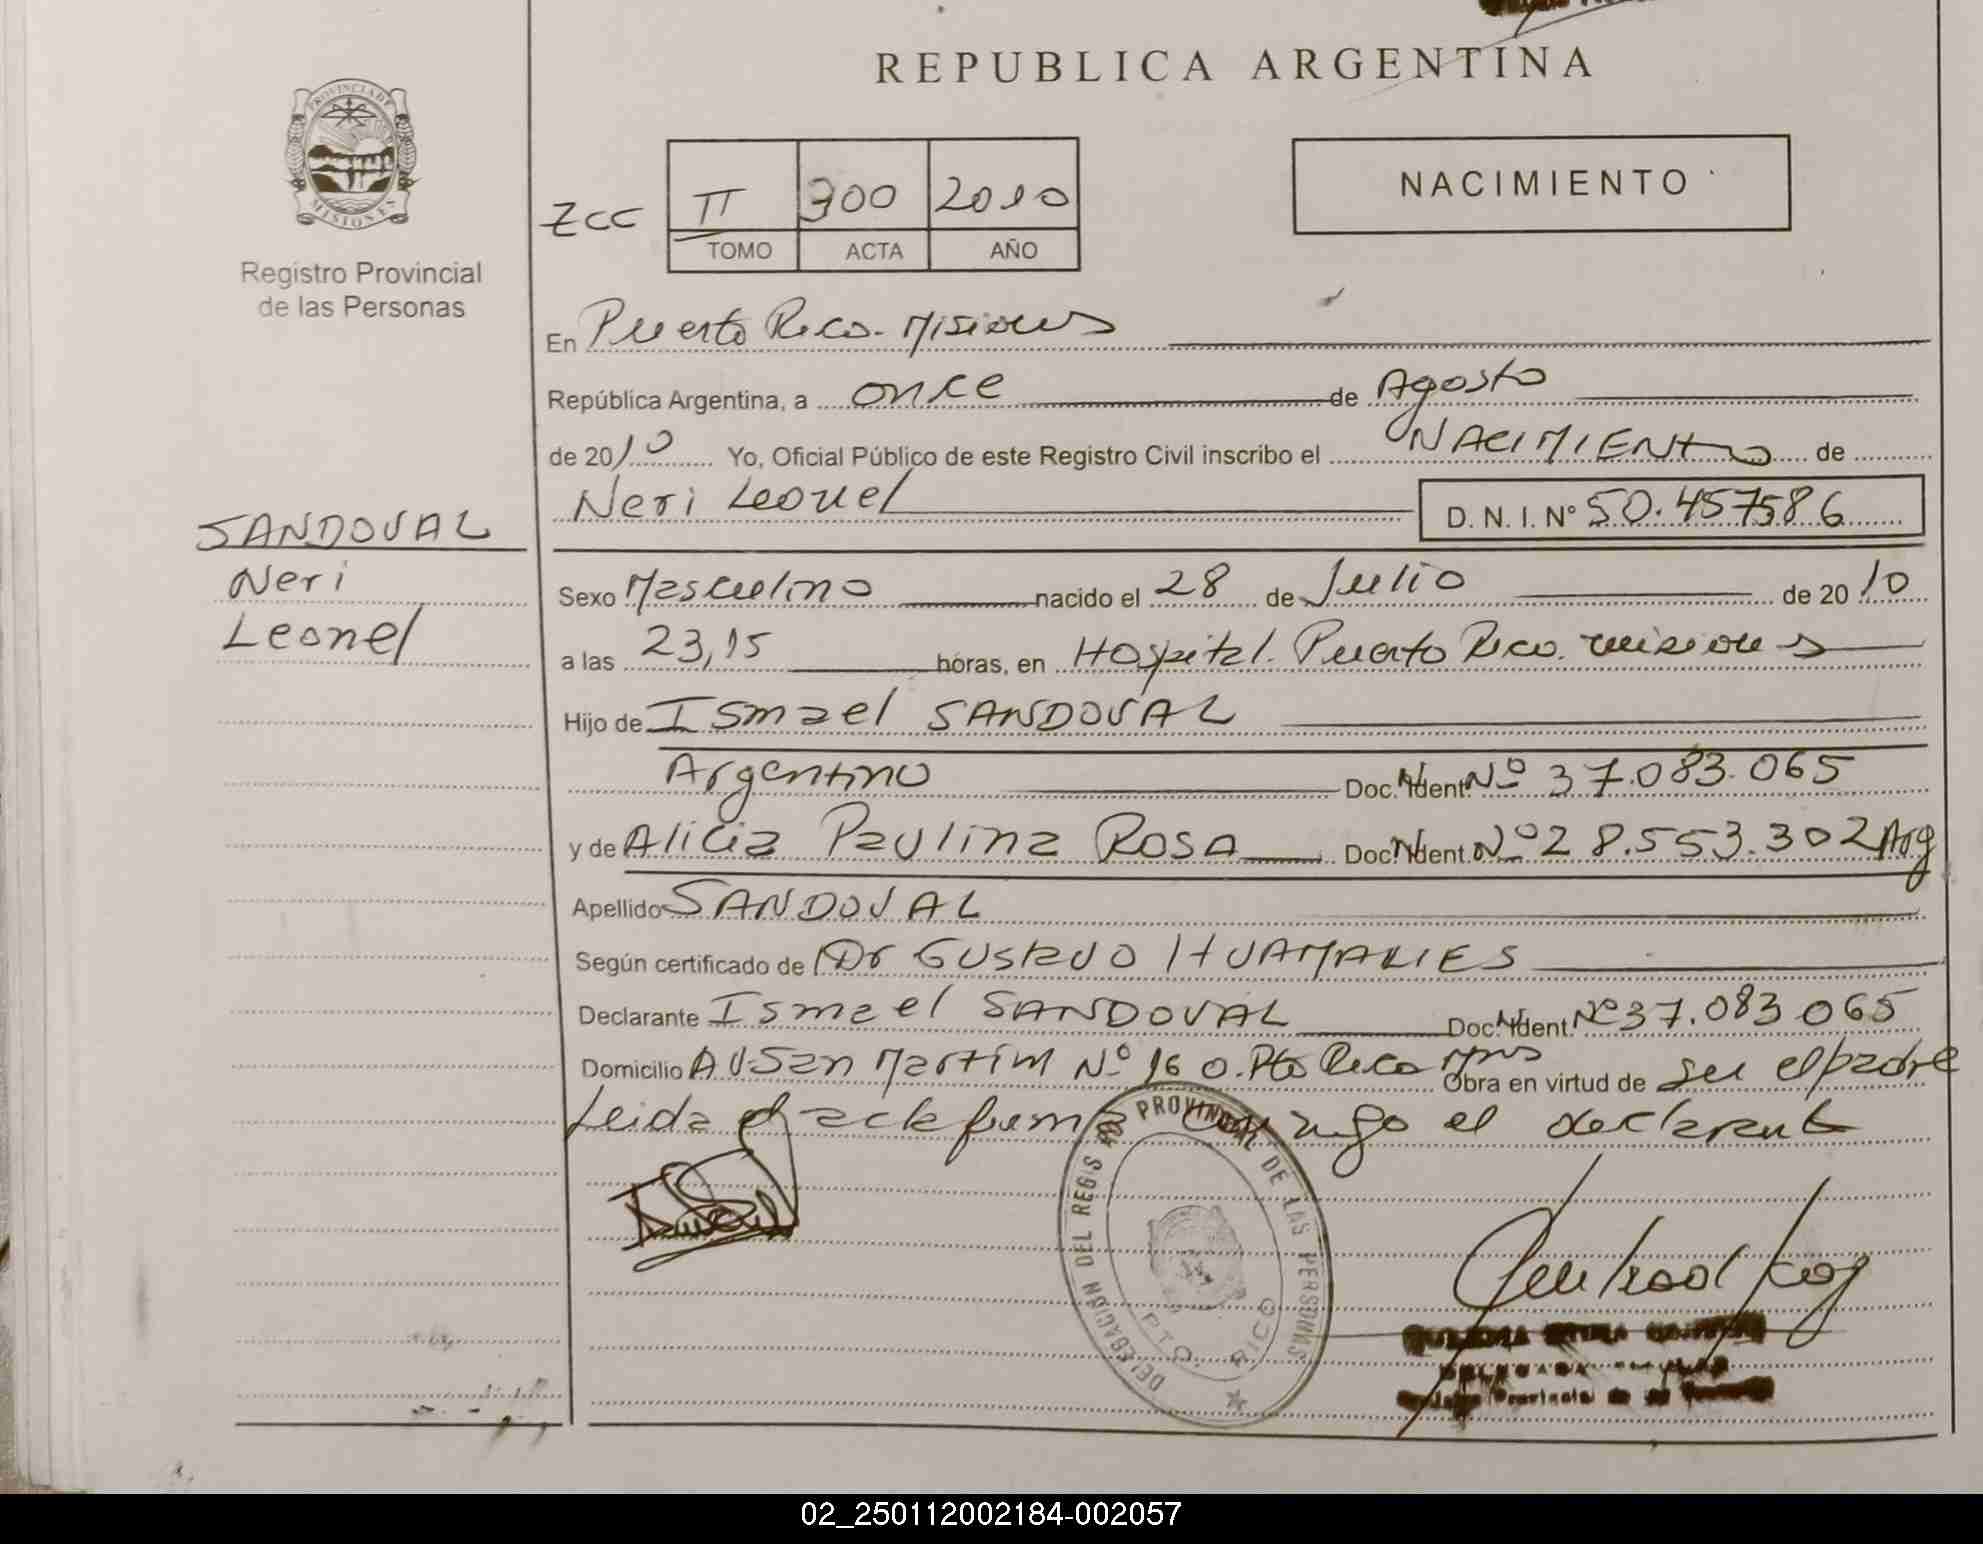 REPUBLICA ARGENTINA
PROVINCIA DE MISIONES
Registro Provincial
de las Personas
ZCC
II 300 2010
TOMO ACTA AÑO
NACIMIENTO
En Puerto Rico. Misiones
República Argentina, a once de Agosto
de 2010 Yo, Oficial Público de este Registro Civil inscribo el NACIMIENTO de
Neri Leonel D. N. I. N° 50.457586
SANDOVAL
Neri
Leonel
Sexo Masculino nacido el 28 de Julio de 2010
a las 23,15 horas, en Hospital. Puerto Rico. misiones
Hijo de Ismael SANDOVAL
Argentino Doc. Ident. Nº 37.083.065
y de Alicia Paulina ROSA Doc. Ident. Nº 28.553.302 Arg
Apellido SANDOVAL
Según certificado de Dr Gustavo HUAMALIES
Declarante Ismael SANDOVAL Doc. Ident. Nº 37.083.065
Domicilio AV San Martim Nº 160. Pto Rico Mnes Obra en virtud de ser el padre
Leida el acta firma conmigo el declarante
DELEGACION DEL REGISTRO PROVINCIAL DE LAS PERSONAS
PTO. RICO
02_250112002184-002057